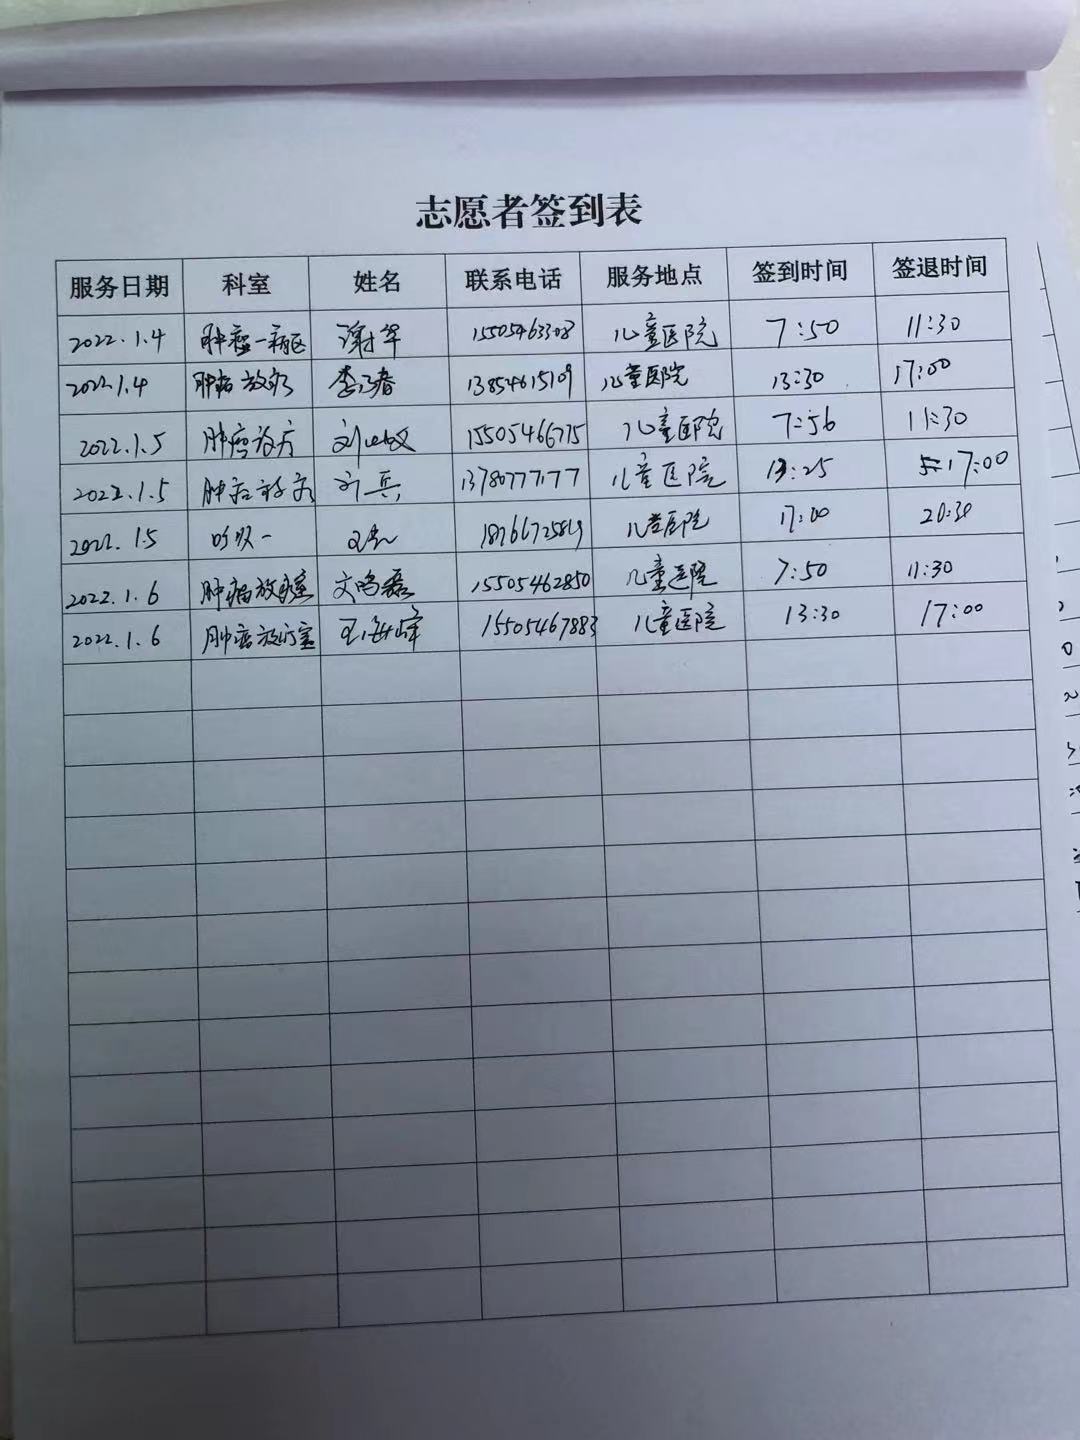 志愿者签到表
服务日期 科室 姓名 联系电话 服务地点 签到时间 签退时间
2022.1.4 肿瘤一病区 谢华 15505463308 儿童医院 7:50 11:30
2022.1.4 肿瘤放疗 李 春 13854615109 儿童医院 13:30 17:00
2022.1.5 肿瘤放疗 刘 15505466775 儿童医院 7:56 11:30
2022.1.5 肿瘤放疗 兵 13780777177 儿童医院 13:25 17:00
2022.1.5 呼吸一 18766725819 儿童医院 17:00 20:30
2022.1.6 肿瘤放疗室 文鸣磊 15505462850 儿童医院 7:50 11:30
2022.1.6 肿瘤放疗室 王海峰 15505467883 儿童医院 13:30 17:00